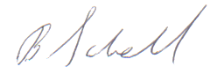 B Schell